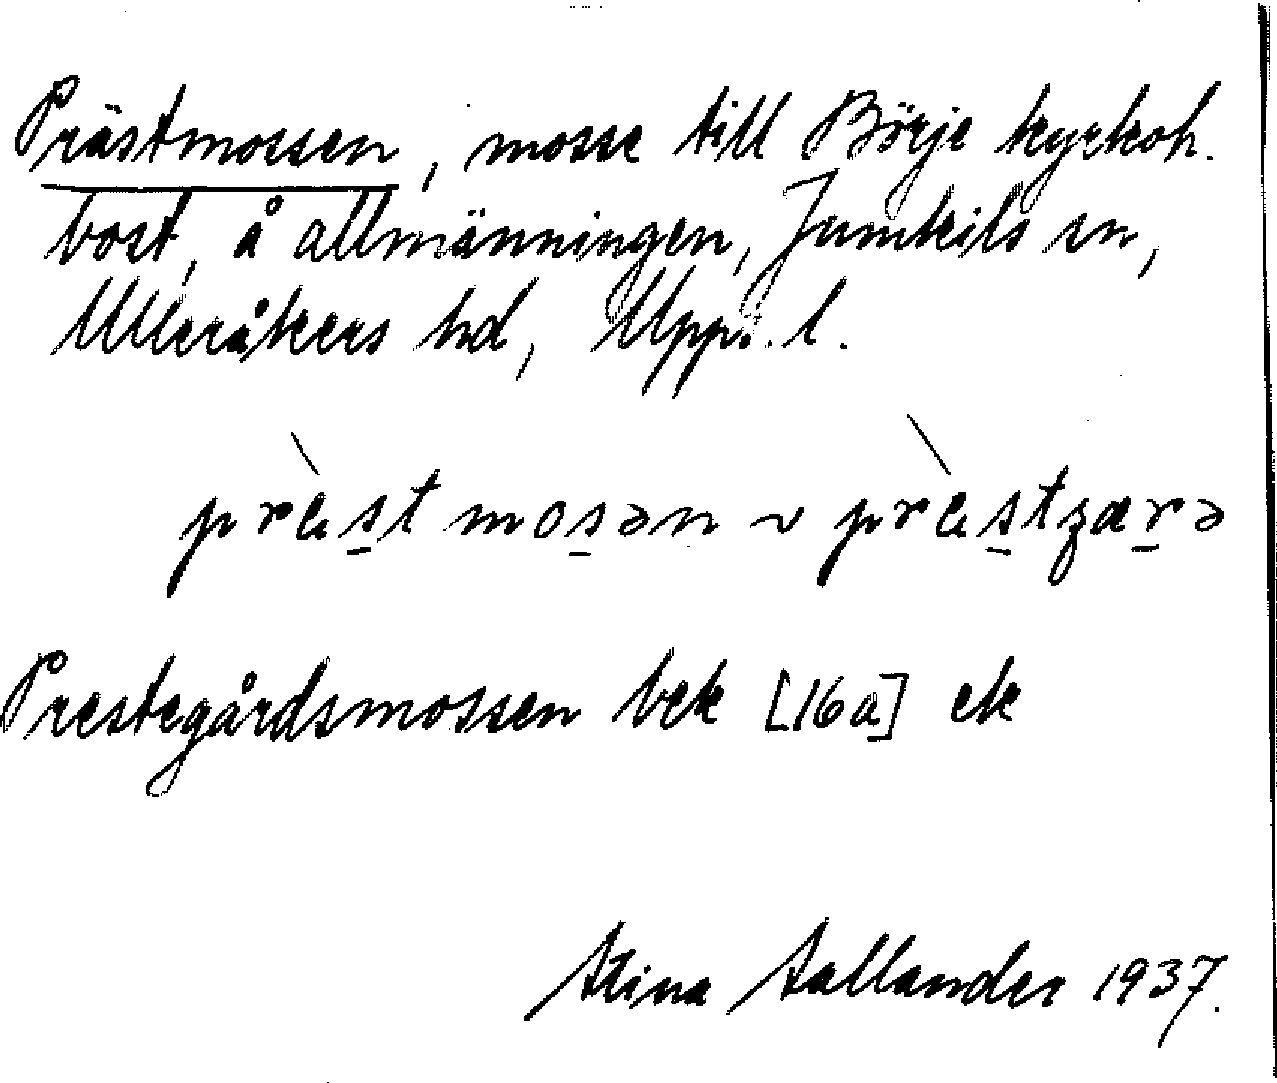 Prästmossen, mosse till Börje kyrkoh.
bost, å allmänningen, Jumkils sn,
Ulleråkers hd, Upps. l.
prèstmosən ~ prèstgærə
Prestegårdsmossen bek [16a] ek
Stina Sallander 1937.